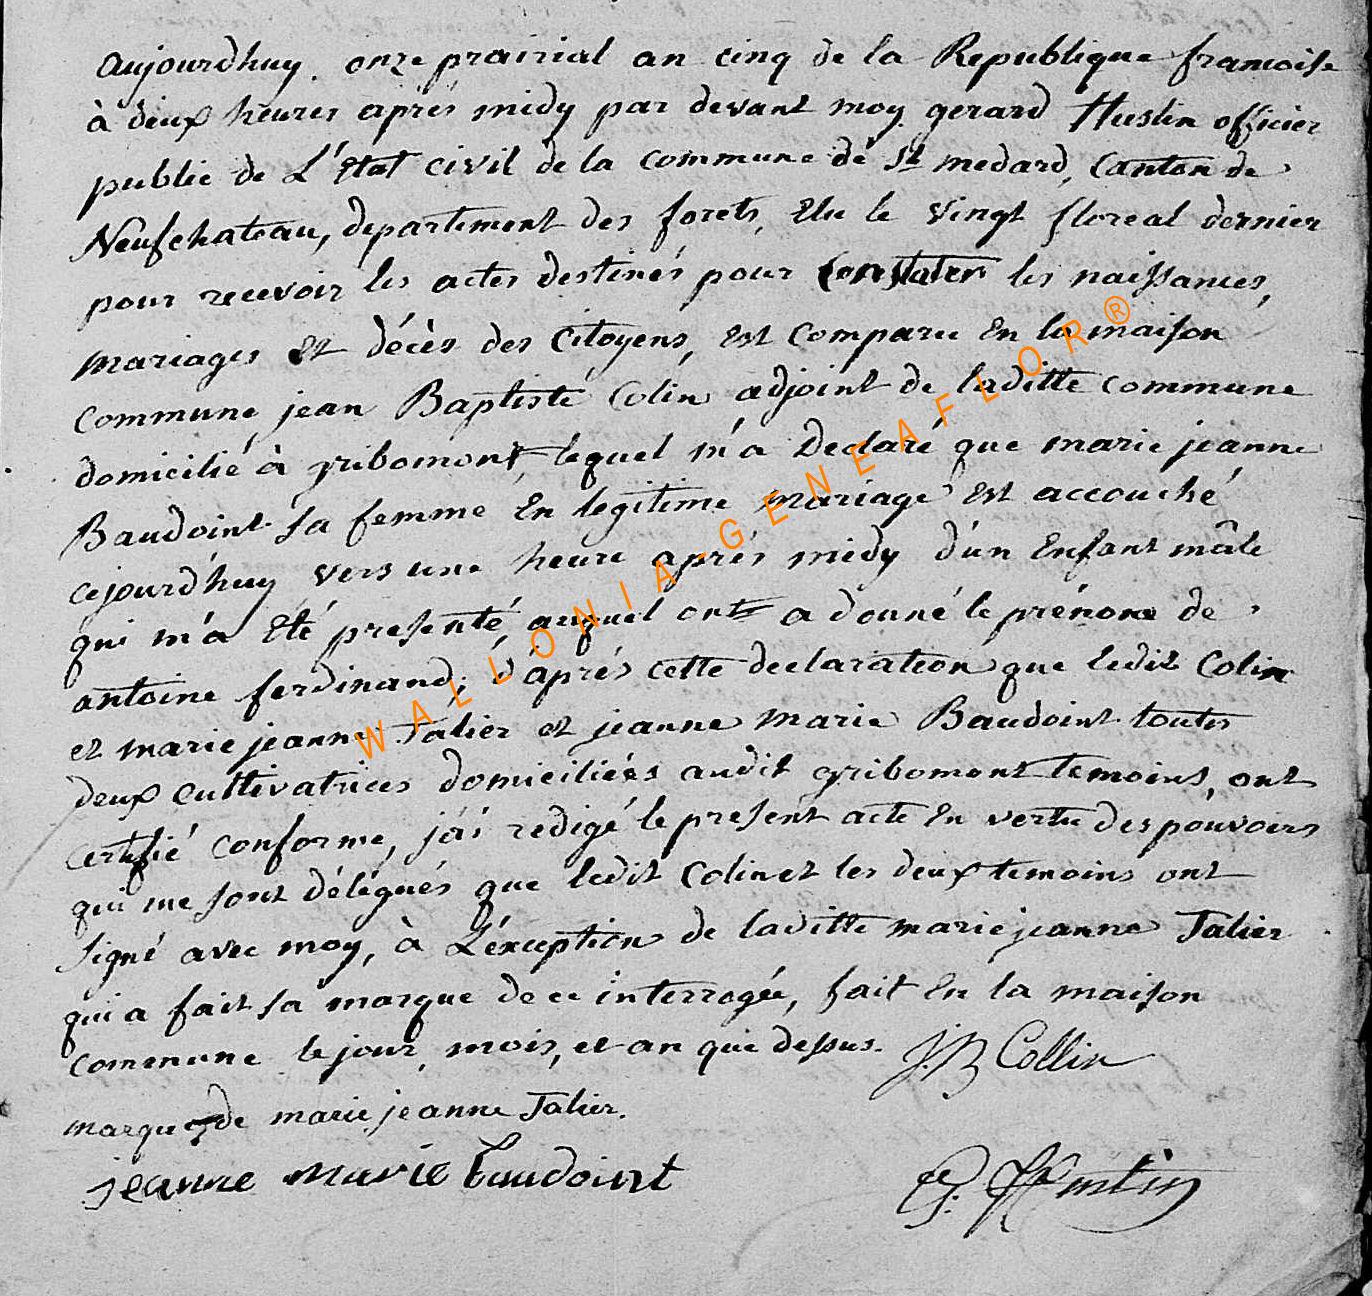 aujourdhuy. onze prairial an cinq de la Republique francoise
à deux heures après midy par devant moy gerard Hustin officier
public de L'Etat civil de la commune de St medard, Canton de
Neufchateau, departement des forets, Elu le vingt floreal dernier
pour recevoir les actes destinés pour Constater les naissances,
mariages et décès des Citoyens, est comparu En la maison
commune jean Baptiste Colin adjoint de laditte commune
domicilié à gribomont, lequel m'a Declaré que marie jeanne
Baudoint sa femme En legitime mariage Est accouché
cejourd'huy vers une heure après midy d'un Enfant mâle
qui m'a Eté presenté, auquel ont a donné le prénom de
antoine ferdinand; d'après cette declaration que ledit Colin
et marie jeanne Jalier et jeanne marie Baudoint toutes
deux cultivatrices domiciliées audit gribomont temoins, ont
certifié conforme, j'ai redigé le present acte En vertu des pouvoirs
qui me sont délégués que ledit Colin et les deux temoins ont
signé avec moy, à L'éxception de laditte marie jeanne Jalier
qui a fait sa marque de ce interrogée, fait En la maison
commune le jour, mois, et an que dessus. J.B Collin
marque de marie jeanne Jalier.
jeanne marie baudoint G. Hustin
WALLONIA-GENEAFLOR®